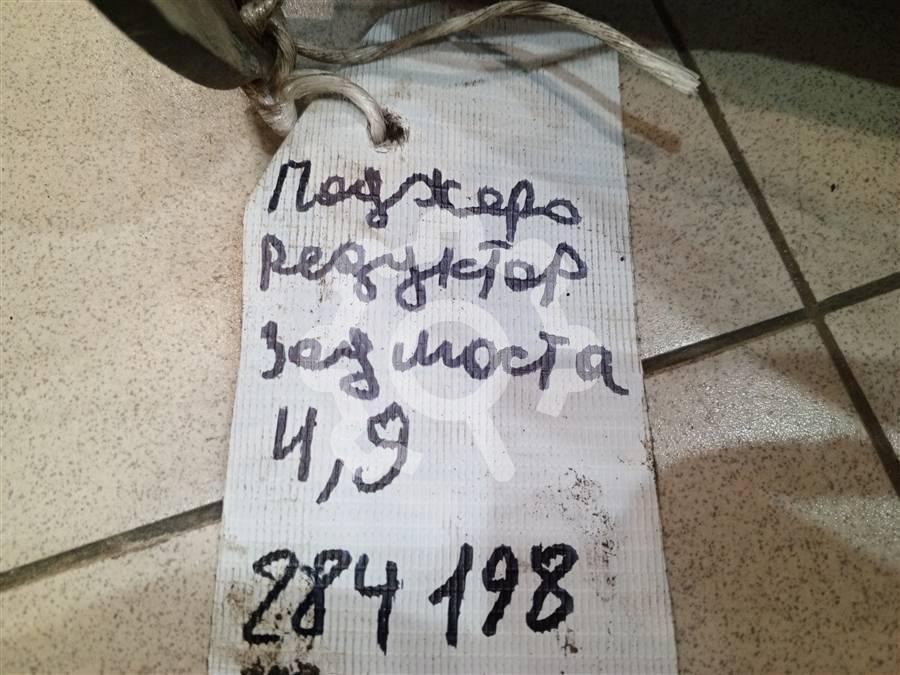 Паджеро
редуктор
зад моста
4,9
284198